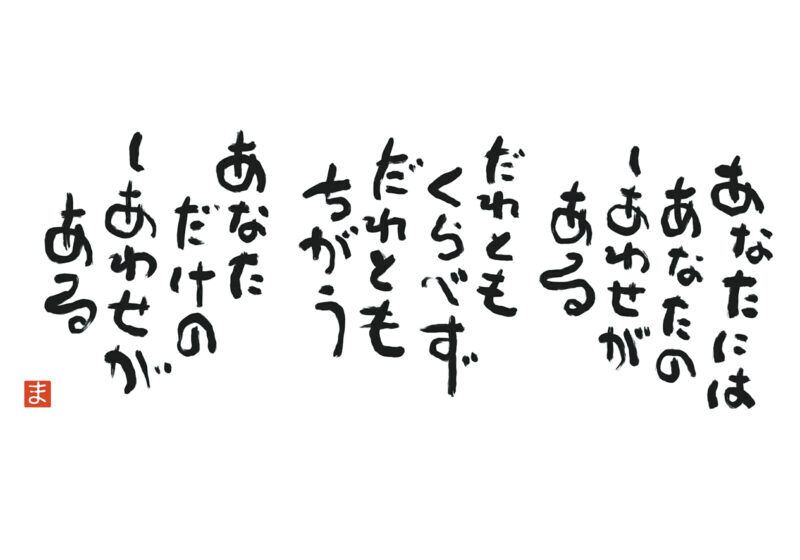 あなたには
あなたの
しあわせが
ある
だれとも
くらべず
だれとも
ちがう
あなた
だけの
しあわせが
ある
ま